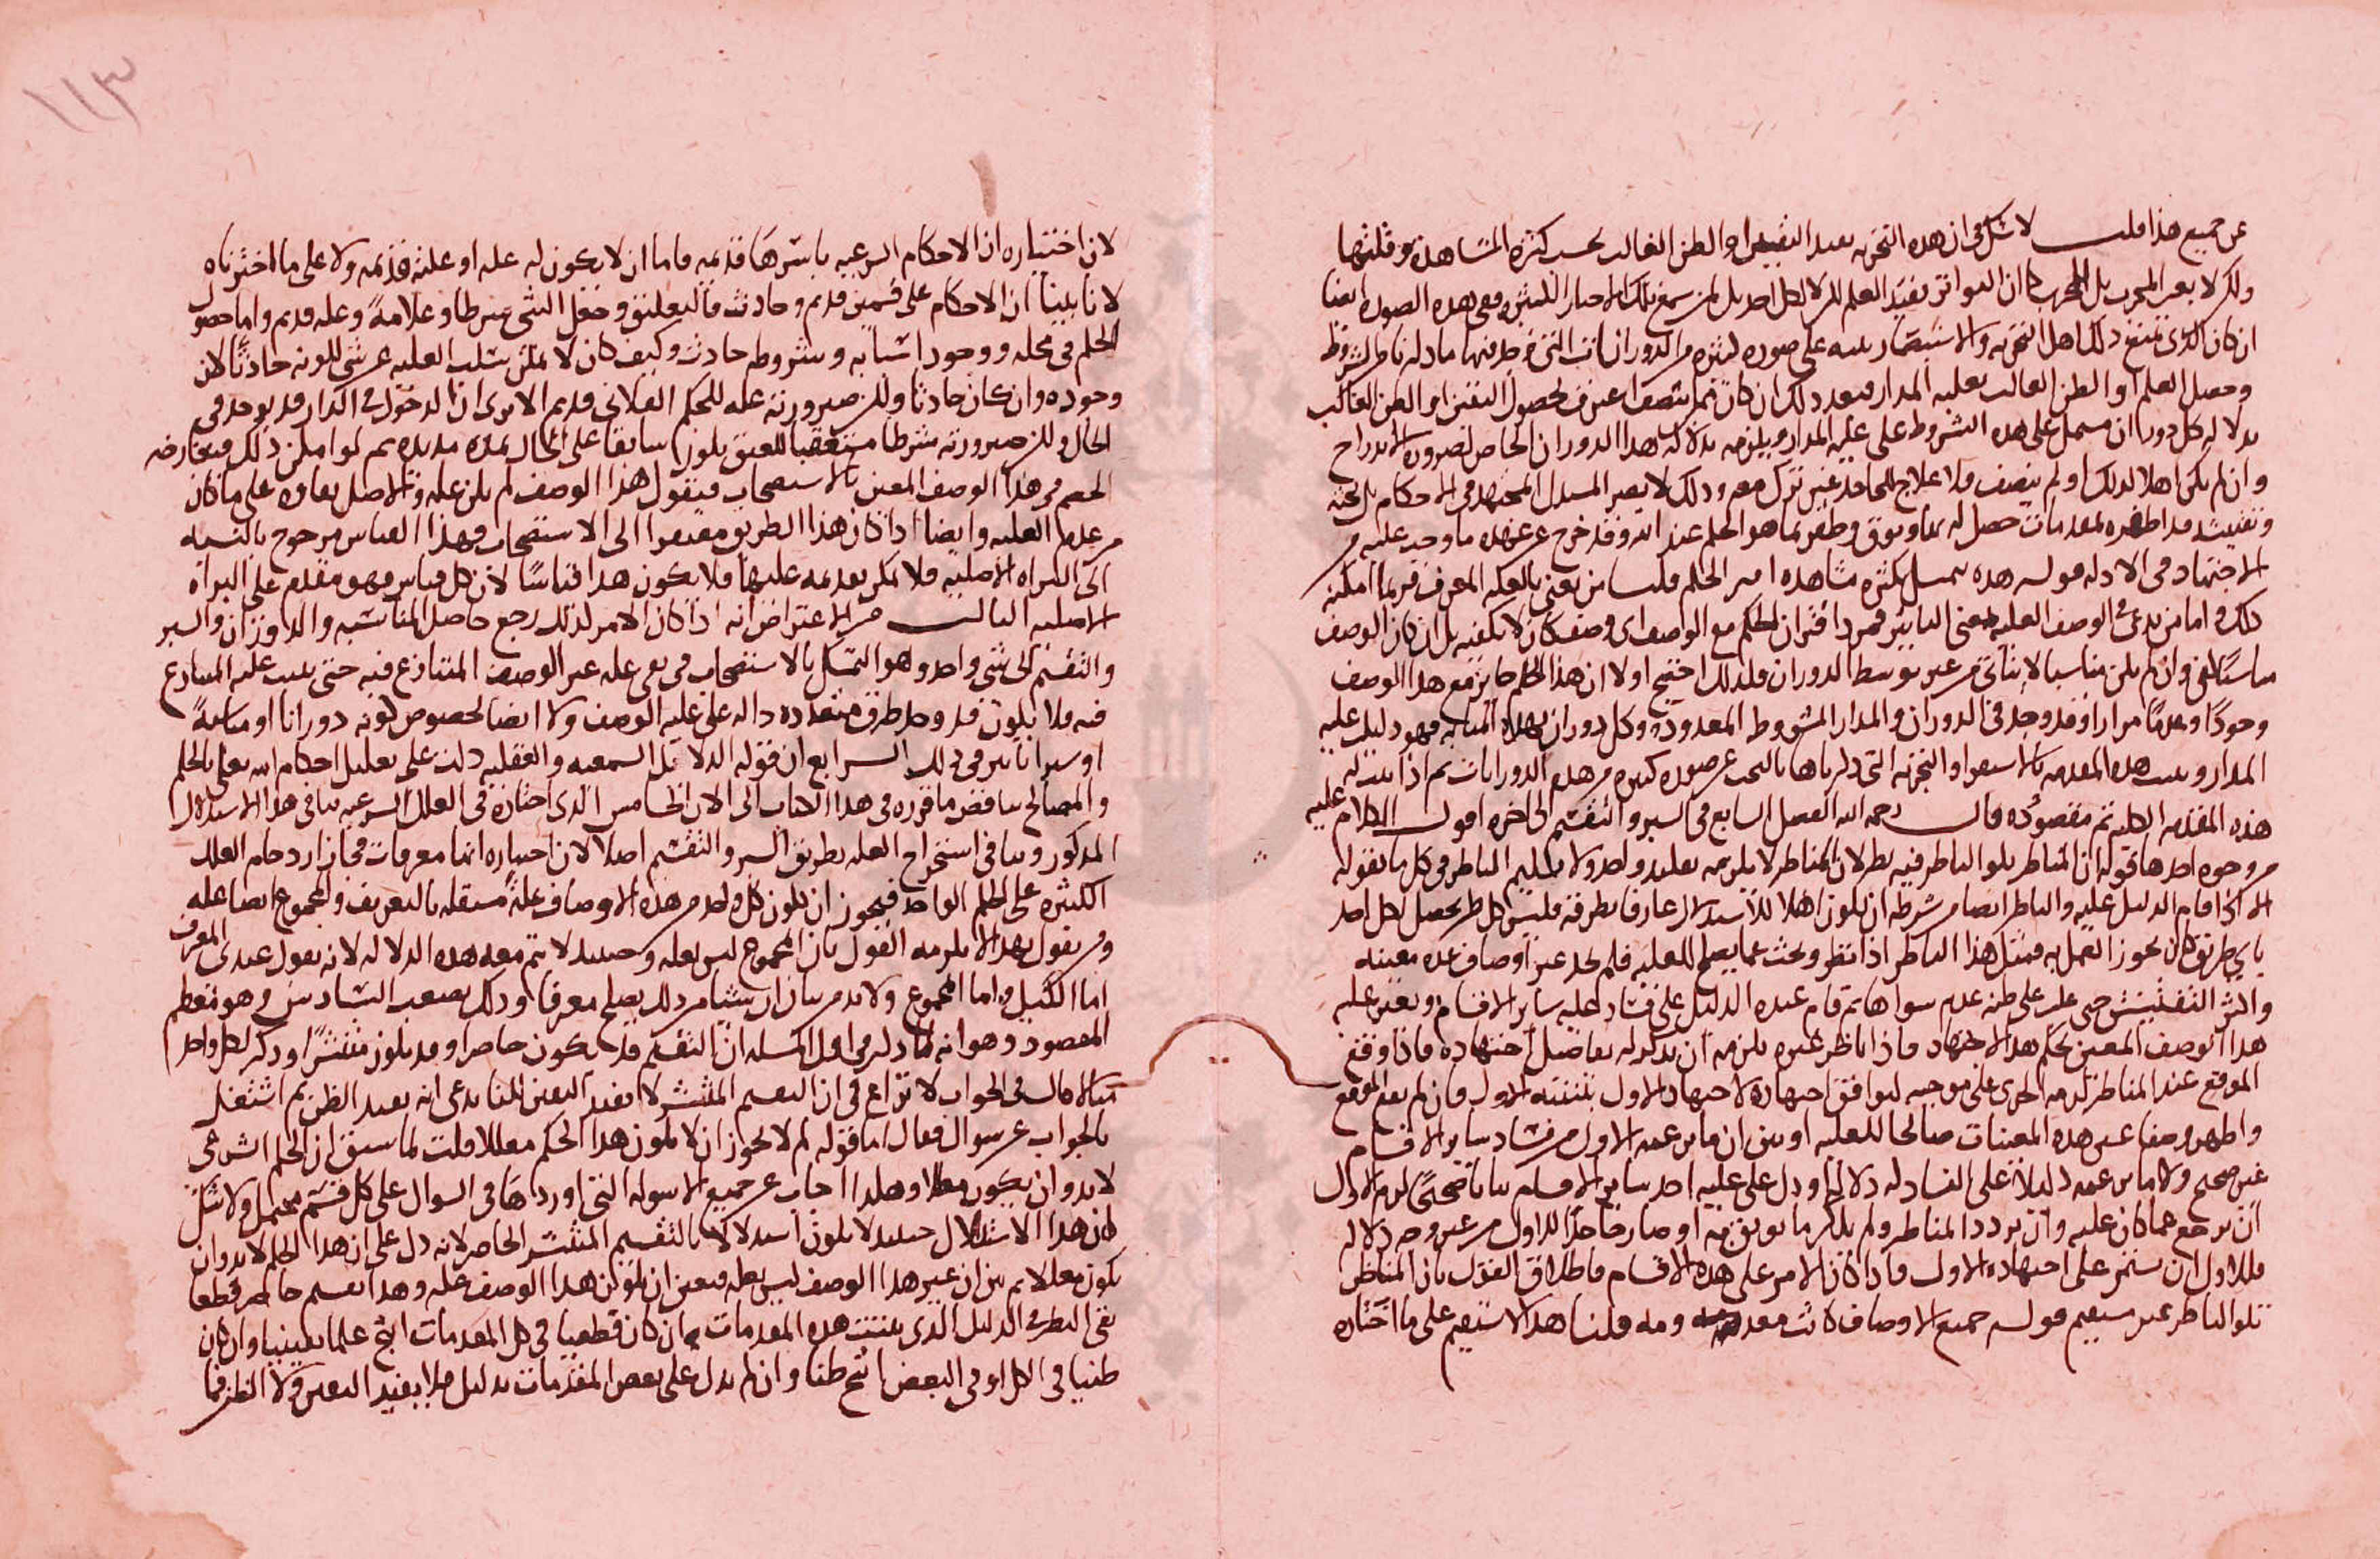 عن جميع هذا قلت لا شك في ان هذه التجربه تفيد اليقين او الظن الغالب بحسب كثره المشاهده وقلتها
ولكن لا بغير المجرب بل للمجرب كما ان التواتر يفيد العلم لكن لا لكل احد بل لمن سمع تلك الاخبار الكثيره ففي هذه الصوره ايضا
ان كان الذي تتبع ذلك اهل التجربه والاستبصار على صوره كثيره من الدورانات التي وجد فيها ما ذكرنا من الشروط
وحصل العلم او الظن الغالب بعليه المدار فبعد ذلك ان كان فهم منصفا اعترف بحصول اليقين او الظن الغالب
بدلاله كل دوران يشتمل على هذه الشروط على عليه المدار ويلزمه بدلاله هذا الدوران الخاص لضروره الاندراج
وان لم يكن اهلا لذلك او لم ينصف فلا علاج للجاحد غير ترك معه وذلك لا يضير المستدل المجتهد في الاحكام بل بحثه
وتفتيشه قد اظفره بمقدمات حصل له بها وثوق وظفر بما هو الحكم عند الله وقد خرج عن عهده ما وجب عليه من
الاجتهاد في الادله قوله هذه تمسك بكثره مشاهده امر الحكم قلنا من يعني بالعله المعرف فربما امكنه
ذلك واما من يدعي في الوصف العليه بمعنى التاثير فمجرد اقتران الحكم مع الوصف اي وصف كان لا يكفيه بل ان كان الوصف
مناسبا كفى وان لم يكن مناسبا لا يتاتى من غير توسط الدوران فلذلك احتج اولا ان هذا الحكم دائر مع هذا الوصف
وجودا وعدما مرارا وقد وجد في الدوران والمدار الشروط المعدوده وكل دوران بهذه المثابه فهو دليل عليه
المدار ويثبت هذه المقدمه بالاستقرا والتجربه التي ذكرناها بالبحث عن صوره كثيره من هذه الدورانات ثم اذا ثبت له
هذه المقدمه الكليه تم مقصوده قال رحمه الله الفصل السابع في السبر والتقسيم الى اخره اقول الكلام عليه
من وجوه احدها قوله ان المناظر تلو الناظر فيه نظر لان المناظر لا يلزمه تقليد ولا تسليم الناظر في كل ما يقوله
الا اذا قام الدليل عليه والناظر ايضا من شرطه ان يكون اهلا للاستدلال عارفا بطرقه فليس كل ظن يحصل لكل احد
باي طريق كان يجوز العمل به فمثل هذا الناظر اذا نظر وبحث عما يصلح للعليه فلم يجد غير اوصاف عده معينه
واكثر التفتيش حتى غلب على ظنه عدم سواها ثم قام عنده الدليل على فساد عليه سائر الاقسام وتعين عليه
هذا الوصف المعين بحكم هذا الاجتهاد فاذا ناظر غيره يلزمه ان يذكر له تفاصيل اجتهاده فاذا وقع
الموقع عند المناظر لزمه الجري على موجبه ليوافق اجتهاده لاجتهاد الاول بتنبيه الاول وان لم يقع الموقع
واظهر وصفا غير هذه المعينات صالحا للعليه او بين ان ما زعمه الاول من فساد سائر الاقسام
غير صحيح ولا ما زعمه دليلا على الفساد له دلاله او دل على عليه احد سائر الاقسام بيانا صحيحا لزم الاول
ان يرجع عما كان عليه وان تردد المناظر ولم يذكر ما يوثق به او صار جاحدا للاول من غير وجه دلاله
فللاول ان يستمر على اجتهاده الاول فاذا كان الامر على هذه الاقسام فاطلاق القول بان المناظر
تلو الناظر غير مستقيم قوله جميع الاوصاف كانت معدومه قلنا هذا لا يستقيم على ما اختاره
١١٣
لان اختياره ان الاحكام الشرعيه باسرها قديمه فاما ان لا يكون له عله او علته قديمه ولا على ما اخترناه
لانا بينا ان الاحكام على قسمين قديم وحادث فالتعليق وجعل الشي شرطا وعلامه وعله قديم واما حصول
الحكم في محله ووجود اسبابه وشروطه حادث وكيف كان لا يمكن سلب العليه عن شي لكونه حادثا لان
وجوده وان كان حادثا ولكن صيرورته عله للحكم الفلاني قديم الا ترى ان الدخول في الدار قد يوجد في
الحال ولكن صيرورته شرطا مستعقبا للعتق يكون سابقا على الحال بمده مديده ثم لو امكن ذلك فيعارضه
الخصم في هذا الوصف المعين بالاستصحاب فيقول هذا الوصف لم يكن عله والاصل بقاوه على ما كان
من عدم العليه وايضا اذا كان هذا الطريق مفتقرا الى الاستصحاب فهذا القياس مرجوح بالنسبه
الى البراه الاصليه فلا يمكن تقديمه عليها فلا يكون هذا قياسا لان كل قياس فهو مقدم على البراه
الاصليه الثالث من الاعتراض انه اذا كان الامر كذلك رجع حاصل المناسبه والدوران والسبر
والتقسيم الى شي واحد وهو التمسك بالاستصحاب في نفي عله غير الوصف المتنازع فيه حتى يثبت عليه المتنازع
فيه فلا يكون قد وجد طرق متعدده داله على عليه الوصف ولا ايضا لخصوص كونه دورانا او مناسبه
او سبرا تاثير في ذلك الرابع ان قوله الدلائل السمعيه والعقليه دلت على تعليل احكام الله تعالى بالحكم
والمصالح يناقض ما قرره في هذا الكتاب الى الان الخامس الذي اختاره في العلل الشرعيه ينافي هذا الاستدلال
المذكور وينافي استخراج العله بطريق السبر والتقسيم اصلا لان اختياره انها معرفات فجاز ازدحام العلل
الكثيره على الحكم الواحد فيجوز ان يكون كل واحد من هذه الاوصاف عله مستقله بالتعريف والمجموع ايضا عله
ومن يقول بهذا لا يلزمه القول بان المجموع ليس بعله وحينئذ لا يتم معه هذه الدلاله لانه يقول عندي المعرف
اما الكل واما المجموع ولا بد من بيان ان شيا من ذلك يصلح معرفا وذلك يصعب السادس وهو معظم
المقصود وهو انه لما ذكر في اول المسله ان التقسيم قد يكون حاصرا وقد يكون منتشرا وذكر لكل واحد
مثالا قال في الجواب لا نزاع في ان التقسيم المنتشر لا يفيد اليقين لكنا ندعي انه يفيد الظن ثم اشتغل
بالجواب عن سوال فقال اما قوله لم لا يجوز ان لا يكون هذا الحكم معللا قلت لما سبق ان الحكم الشرعي
لا بد وان يكون معللا وهكذا اجاب عن جميع الاسوله التي اوردها في السوال على كل قسم محتمل ولا شك
ان هذا الاستدلال حينئذ لا يكون استدلالا بالتقسيم المنتشر الحاصر لانه دل على ان هذا الحكم لا بد وان
يكون معللا ثم بين ان غير هذا الوصف ليس بعله فتعين ان يكون هذا الوصف عله وهذا تقسيم حاصر قطعا
بقي النظر في الدليل الذي يثبت هذه المقدمات فان كان قطعيا في كل المقدمات انتج علما يقينيا وان كان
ظنيا في الكل او في البعض انتج ظنا وان لم يدل على بعض المقدمات بدليل فلا يفيد اليقين ولا الظن فما